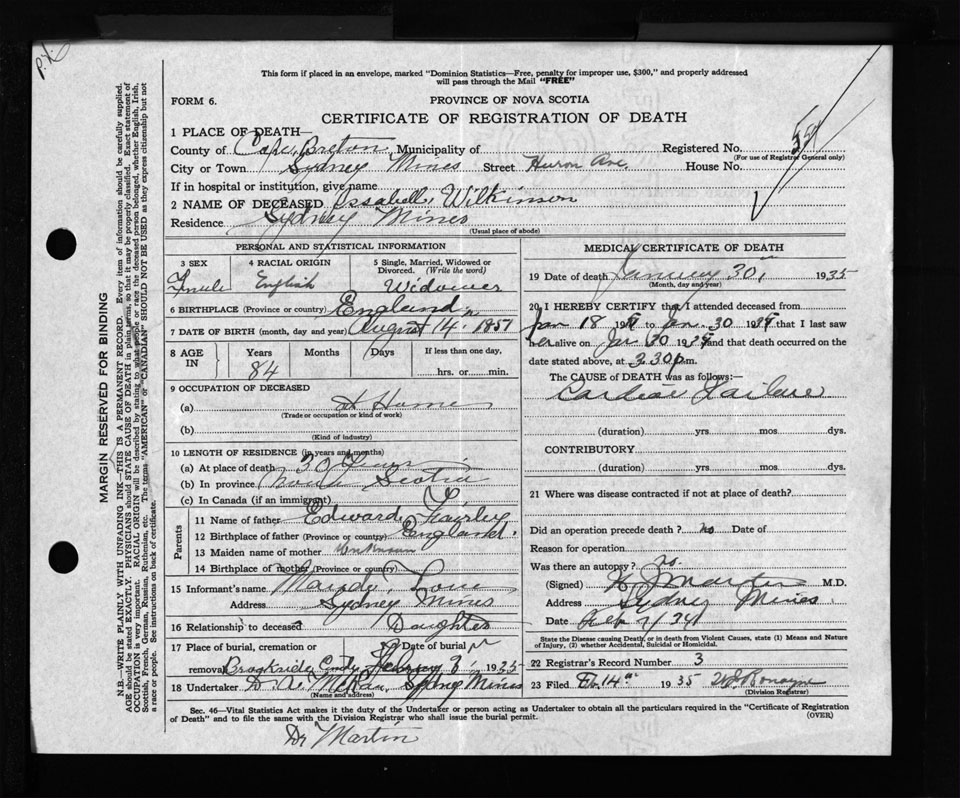 P.X.
This form if placed in an envelope, marked "Dominion Statistics—Free, penalty for improper use, $300," and properly addressed
will pass through the Mail "FREE"
FORM 6.
PROVINCE OF NOVA SCOTIA
CERTIFICATE OF REGISTRATION OF DEATH
1 PLACE OF DEATH—
County of Cape Breton Municipality of Registered No.
(For use of Registrar General only)
City or Town Sydney Mines Street Huron Ave. House No.
If in hospital or institution, give name
2 NAME OF DECEASED Issabell Wilkinson
Residence Sydney Mines
(Usual place of abode)
PERSONAL AND STATISTICAL INFORMATION
3 SEX 4 RACIAL ORIGIN 5 Single, Married, Widowed or Divorced. (Write the word)
Female English Widower
6 BIRTHPLACE (Province or country) England
7 DATE OF BIRTH (month, day and year) August 14. 1851
8 AGE IN Years Months Days If less than one day,
84 hrs. or min.
9 OCCUPATION OF DECEASED
(a) At Home
(Trade or occupation or kind of work)
(b)
(Kind of industry)
10 LENGTH OF RESIDENCE (in years and months)
(a) At place of death 30 Years
(b) In province Nova Scotia
(c) In Canada (if an immigrant)
Parents
11 Name of father Edward
12 Birthplace of father (Province or country) England.
13 Maiden name of mother Unknown
14 Birthplace of mother (Province or country)
15 Informant's name Maudy Love
Address Sydney Mines
16 Relationship to deceased Daughter
17 Place of burial, cremation or removal Date of burial
Brookside, February 1925
18 Undertaker D. A. Sydney Mines
(Name and address)
MEDICAL CERTIFICATE OF DEATH
19 Date of death January 30, 1935
(Month, day and year)
20 I HEREBY CERTIFY that I attended deceased from
Jan 18 19 to Jan 30 19 that I last saw
her alive on Jan 30 19 and that death occurred on the
date stated above, at 3.30 p.m.
The CAUSE of DEATH was as follows:—
Cardiac Failure
(duration) yrs mos dys.
CONTRIBUTORY
(duration) yrs mos dys.
21 Where was disease contracted if not at place of death?
Did an operation precede death? no Date of
Reason for operation
Was there an autopsy? no.
(Signed) Martin M.D.
Address Sydney Mines
Date Feb
State the Disease causing Death, or in death from Violent Causes, state (1) Means and Nature
of Injury, (2) whether Accidental, Suicidal or Homicidal.
22 Registrar's Record Number 3
23 Filed Feb 14 1935
(Division Registrar)
Sec. 46—Vital Statistics Act makes it the duty of the Undertaker or person acting as Undertaker to obtain all the particulars required in the "Certificate of Registration
of Death" and to file the same with the Division Registrar who shall issue the burial permit.
(OVER)
Dr Martin
MARGIN RESERVED FOR BINDING
N.B.—WRITE PLAINLY WITH UNFADING INK—THIS IS A PERMANENT RECORD. Every item of information should be carefully supplied.
AGE should be stated EXACTLY. PHYSICIANS should STATE CAUSE OF DEATH in plain terms, so that it may be properly classified. Exact statement of
OCCUPATION is very important. RACIAL ORIGIN will be described by stating to what people or race the deceased person belonged, whether English, Irish,
Scottish, French, German, Russian, Ruthenian, etc. The terms "AMERICAN" or "CANADIAN" SHOULD NOT BE USED as they express citizenship but not
a race or people. See instructions on back of certificate.